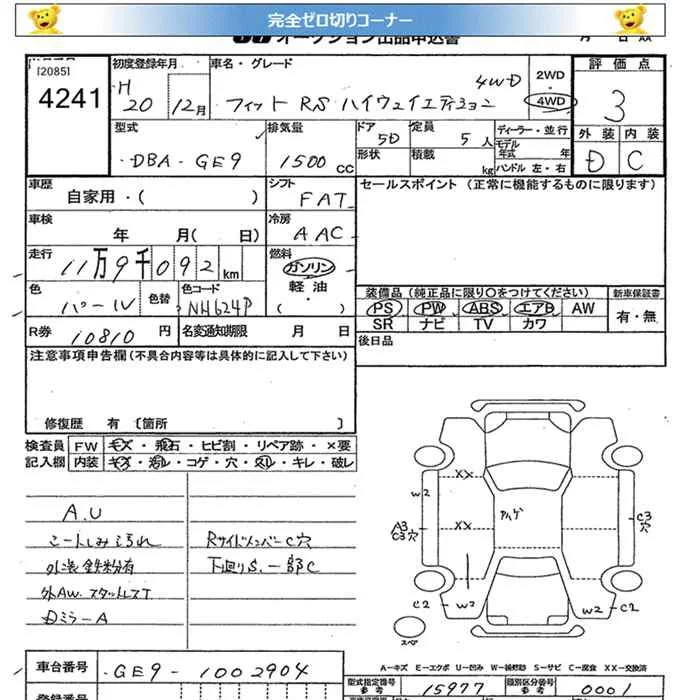 完全ゼロ切りコーナー
オークション出品申込書
[2085]
4241
初度登録年月
H
20 12月
車名・グレード
4WD
フィット RS ハイウェイエディション
2WD
・
4WD
評価点
3
外装 内装
D C
型式
DBA-GE9
排気量
1500 CC
ドア 5D
形状
定員 5人
積載 kg
ディーラー・並行
モデル年式 年
ハンドル 左・右
車歴
自家用・( )
シフト
FAT
セールスポイント (正常に機能するものに限ります)
車検
年 月( 日)
冷房
AAC
走行
11万9千092km
燃料
ガソリン
軽油
・( )
色
パール
色替
色コード
NH624P
装備品(純正品に限り○をつけてください)
新車保証書
PS PW ABS エアB AW
SR ナビ TV カワ
有・無
R券 10810円
名変通知期限 月 日
後日品
注意事項申告欄(不具合内容等は具体的に記入して下さい)
修復歴 有 〔箇所 〕
検査員記入欄
FW キズ・飛石・ヒビ割・リペア跡・×要
内装 キズ・汚れ・コゲ・穴・スレ・キレ・破レ
A.U
シートしみ汚れ
外装鉄粉有
外AW.スタットレスT
Dミラ-A
Rサイドメンバー C穴
下廻りS.一部C
XX
W2
XX
アハゲ
A3
C3
穴
C3
穴
C2
W2
W2
C2
スペ
A-キズ E-エクボ U-凹み W-補修跡 S-サビ C-腐食 XX-交換済
車台番号
GE9-1002904
型式指定番号
参考
15977
類別区分番号
参考
0001
登録番号